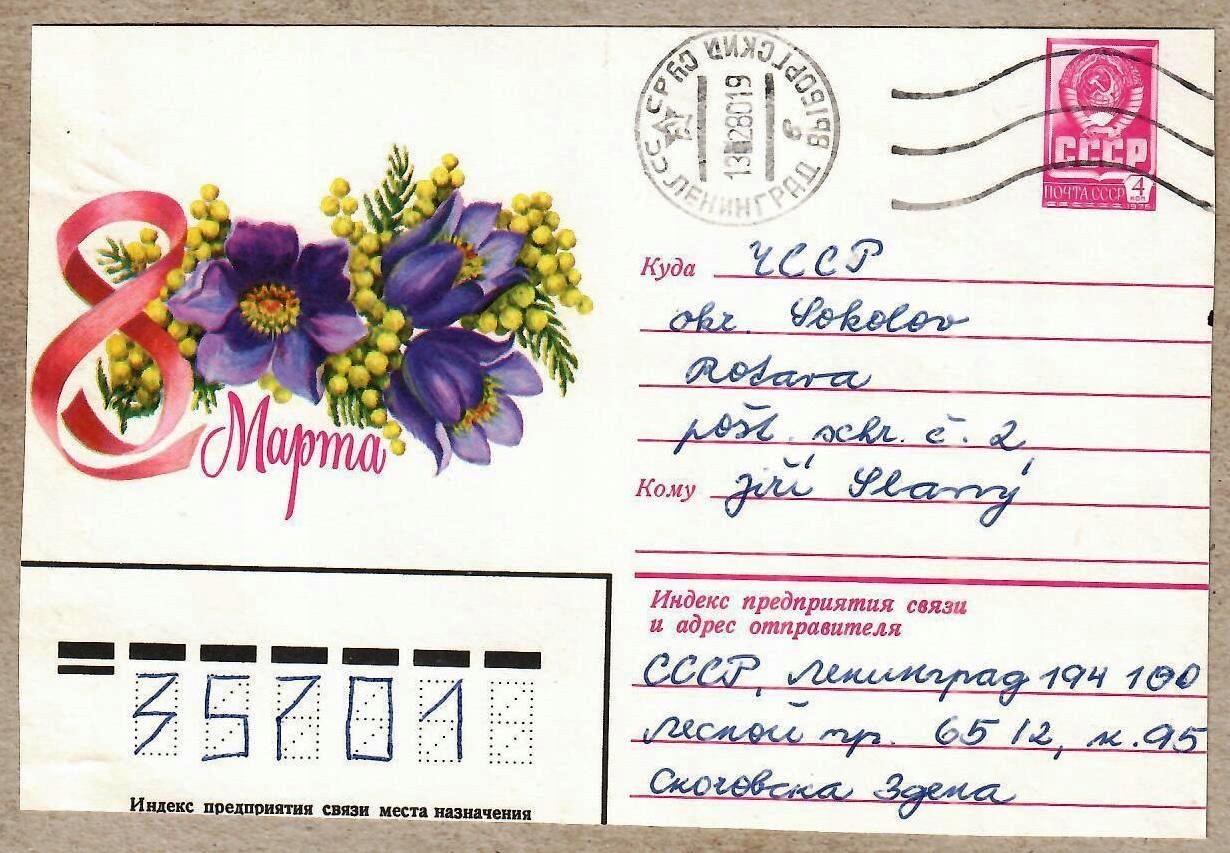 8
Марта
ЛЕНИНГРАД ВЫБОРГСКИЙ
6
СССР
ПОЧТА СССР
4
КОП
1976
Куда ЧССР
okr. Sokolov
Rotava
pošt. schr. č. 2
Кому Jiří Slavný
Индекс предприятия связи
и адрес отправителя
СССР, Ленинград 194 100
Лесной пр. 65/2, к. 95
Скочовска Здена
35701
Индекс предприятия связи места назначения